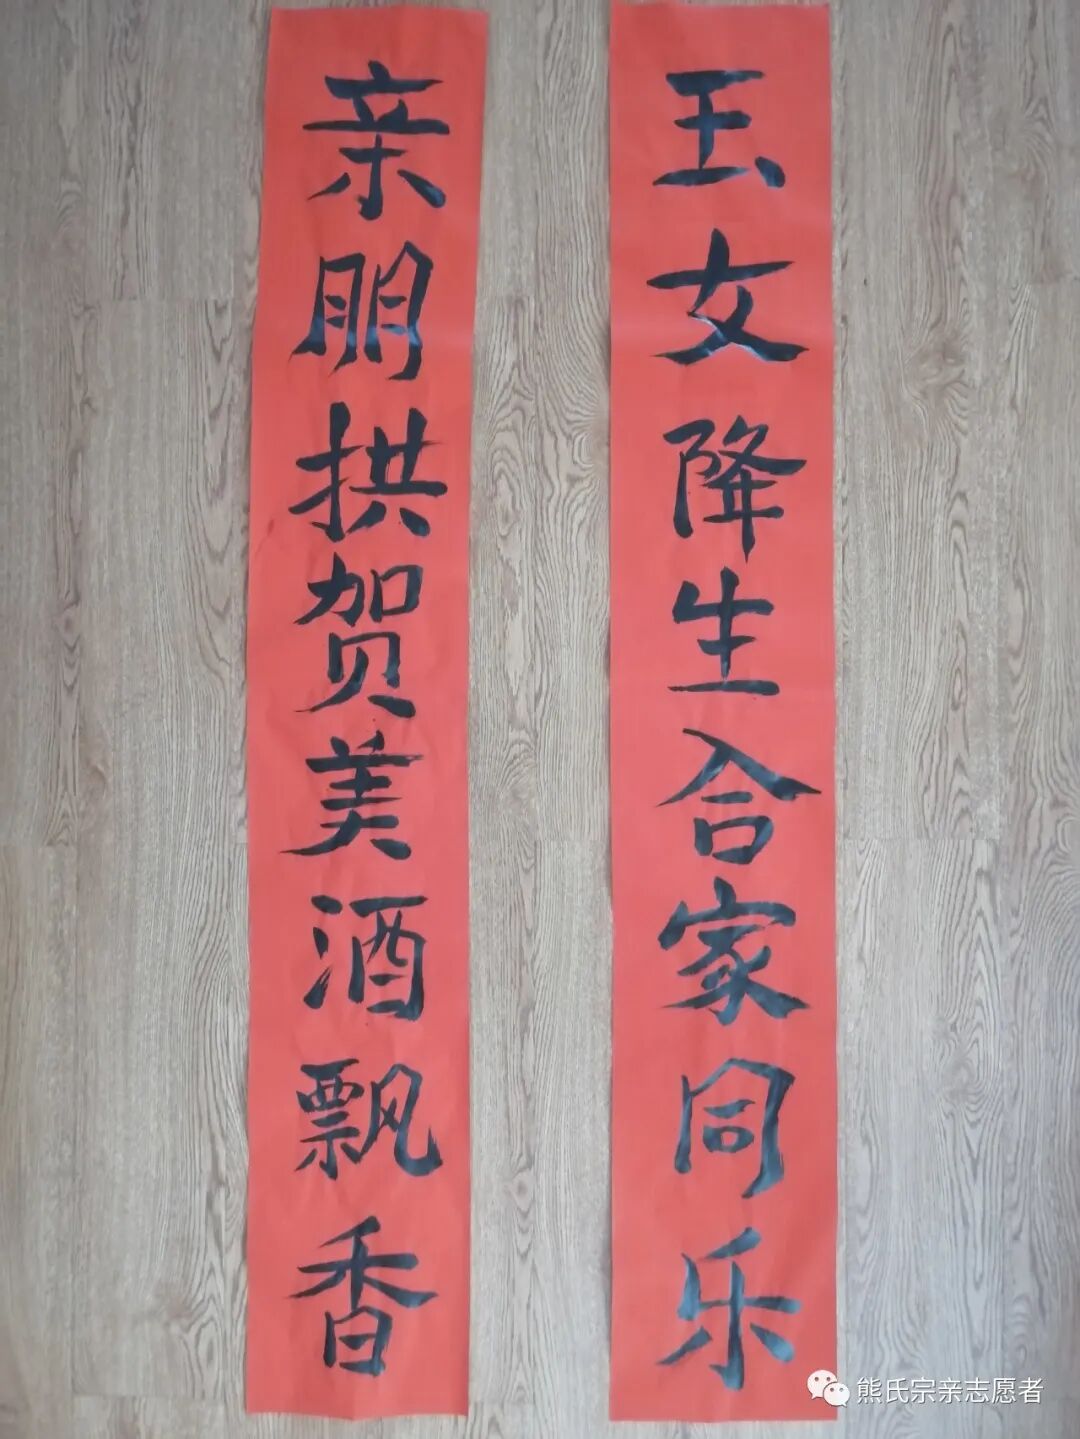 玉女降生合家同乐
亲朋拱贺美酒飘香
熊氏宗亲志愿者